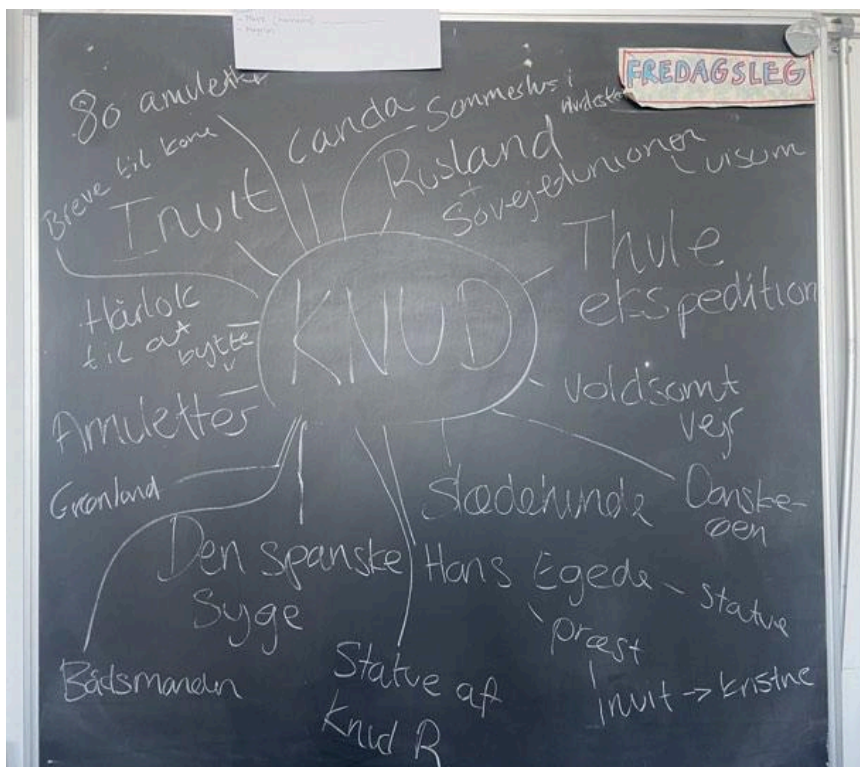 FREDAGSLEG
80 amuletter
Breve til kone
Inuit
Canda
Sommerhus i
Rusland
Sovejedunionen
visum
Thule
ekspedition
Hårlok
til at
bytte
KNUD
voldsomt
vejr
Amuletter
Grønland
Slædehunde
Danske-
øen
Den spanske
syge
Hans Egede - statue
præst
inuit → kristne
Bådsmanden
Statue af
Knud R